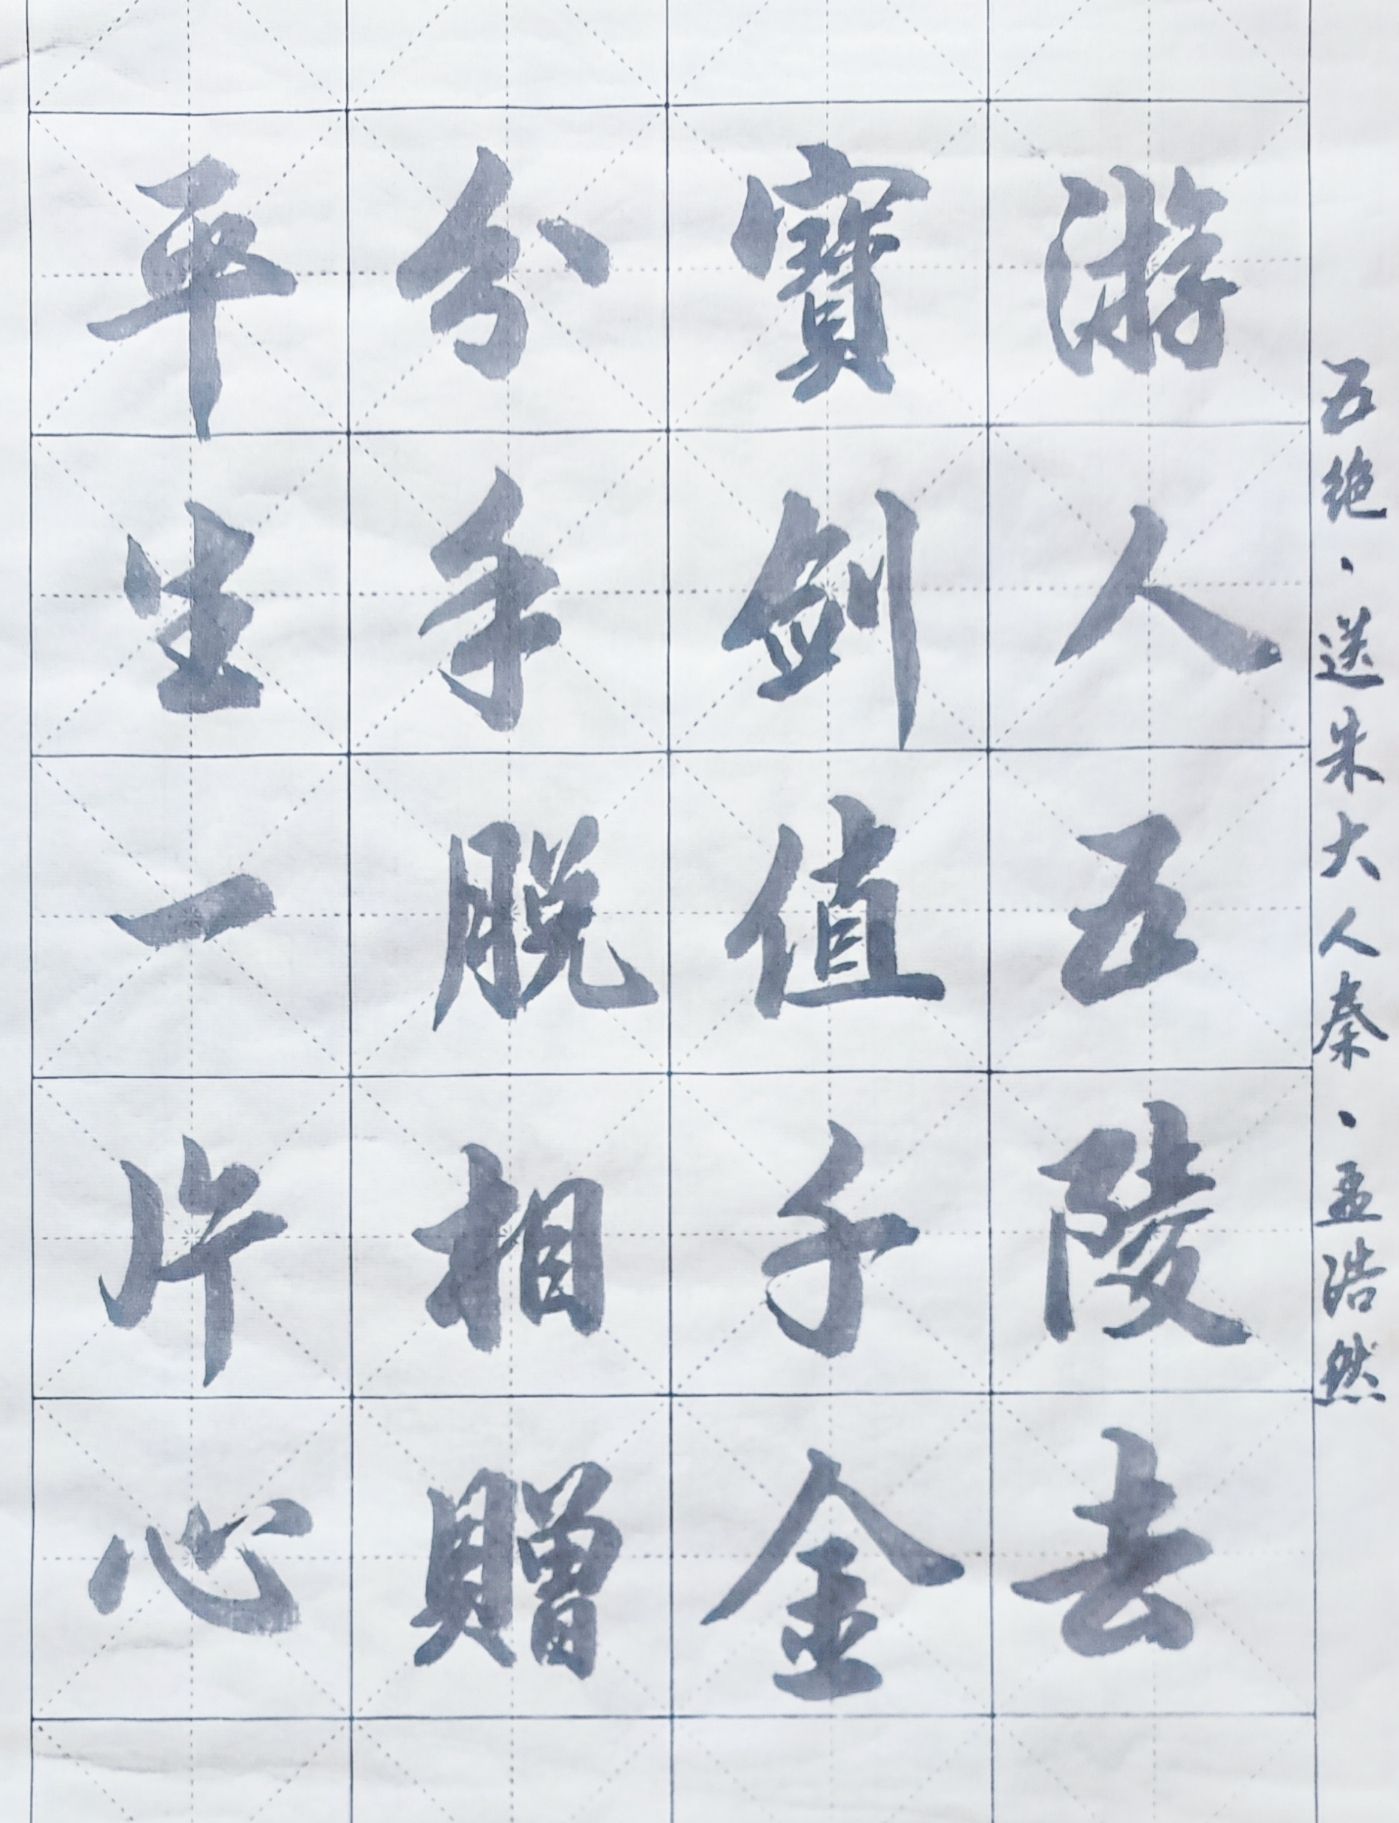 五绝、送朱大人秦、孟浩然
游人五陵去
寶剑值千金
分手脱相贈
平生一片心